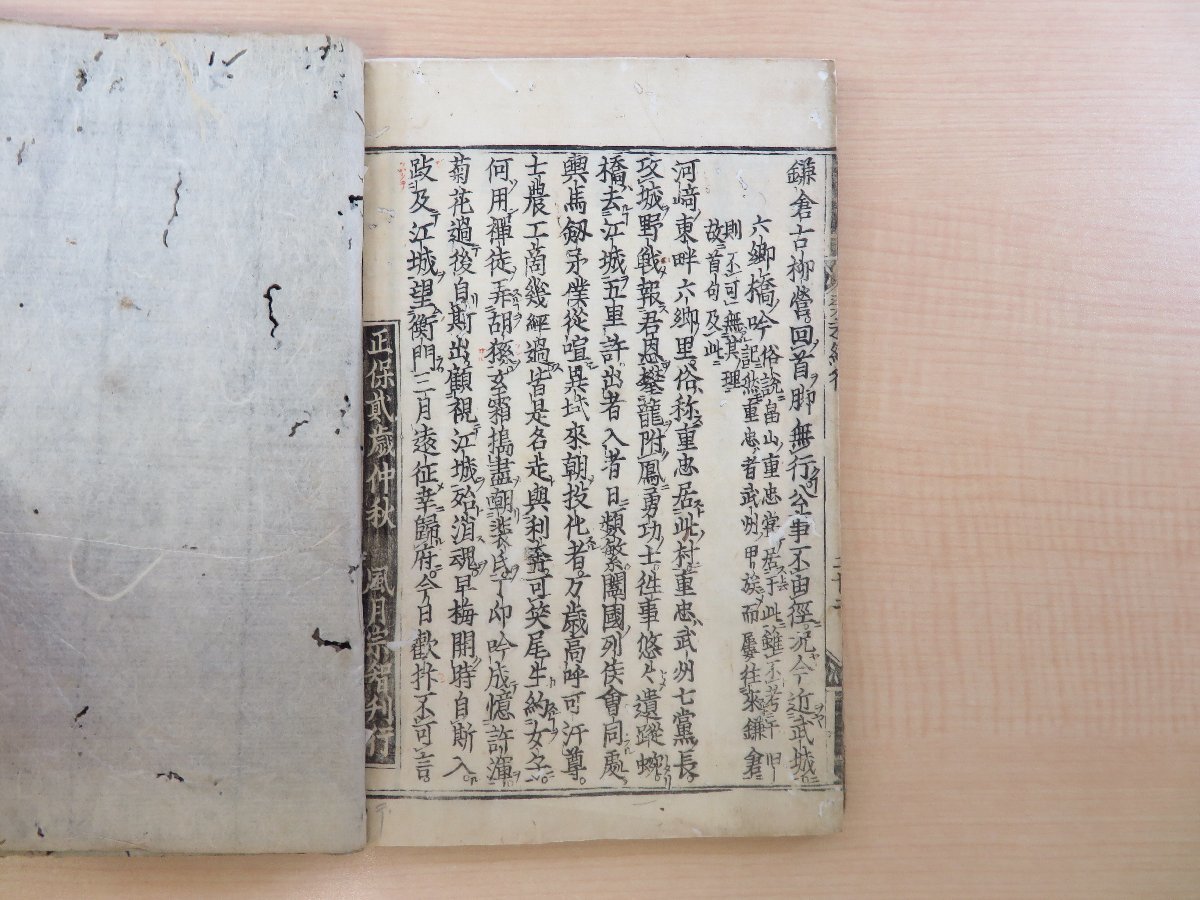 鎌倉古柳營回首脚無行公事不由徑況今近武城
六郷橋吟 俗說畠山重忠常居于此雖不考干旧
記然重忠者武州甲族而屢往來鎌倉
則不可無其理
故首句及此
河﨑東畔六郷里俗称重忠居此村重忠武州七黨長
攻城野戦報君恩攀龍附鳳勇功士徃事悠々遺蹤
橋去江城五里許出者入者日類繁闔國列侯會同處
輿馬劔矛僕從喧異域來朝投化者万歳高呼可汗尊
士農工商幾經過皆是名走與利奔可笑尾生約女子
何用禪徒弄胡猻玄霜搗盡朝裴氏卬吟成憶許渾
菊花過後自斯出顧視江城殆消魂早梅開時自斯入
跂及江城望衡門三月遠征幸歸府今日歡抃不可言
正保貳歳仲秋 風月宗智刊行